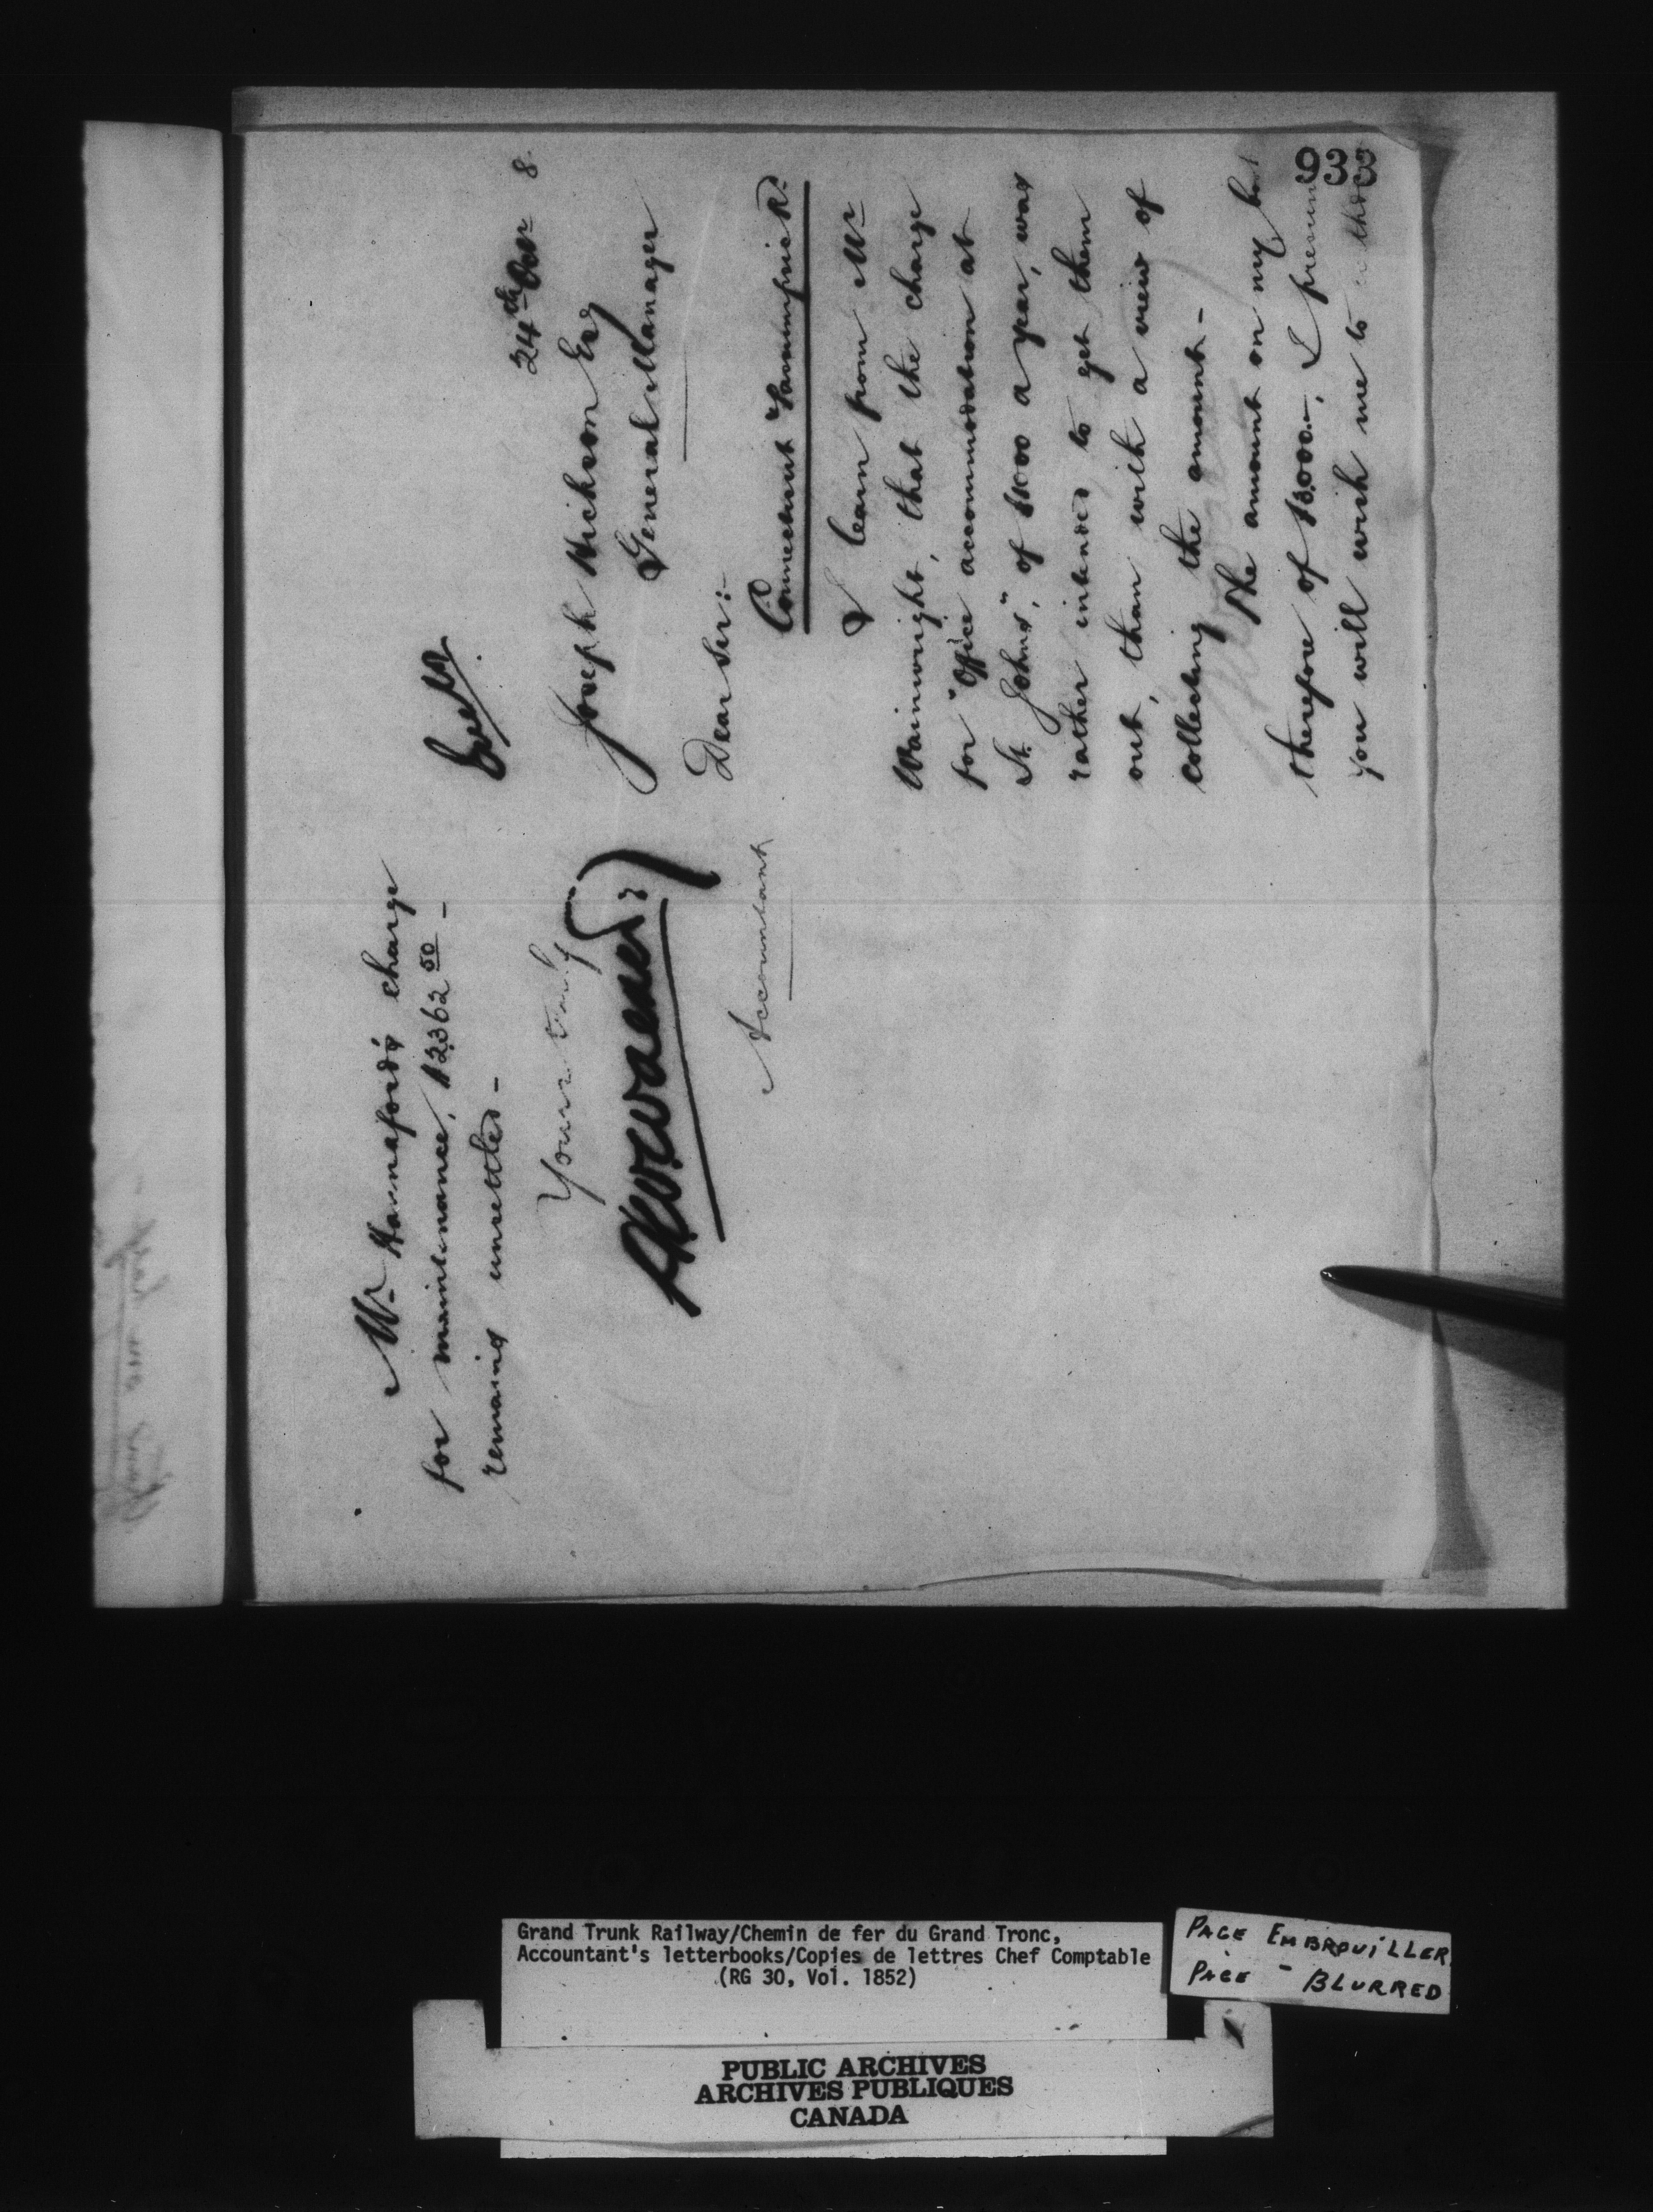 933
24th Octr 8
Joseph Hickson Esq
General Manager
Dear Sir:-
I learn from Mr
Wainwright, that the charge
for "Office accommodation at
St. Johns", of $1000 a year, was
rather intended to get them
out, than with a view of
collecting the amount -
The amount on my
therefore of $3,000.-, I presume
you will wish me to
Mr Hannaford's charge
for maintenance, $2362 50 -
remains unsettled -
Yours truly
Accountant
Grand Trunk Railway/Chemin de fer du Grand Tronc,
Accountant's letterbooks/Copies de lettres Chef Comptable
(RG 30, Vol. 1852)
PAGE EMBROUILLER
PAGE - BLURRED
PUBLIC ARCHIVES
ARCHIVES PUBLIQUES
CANADA